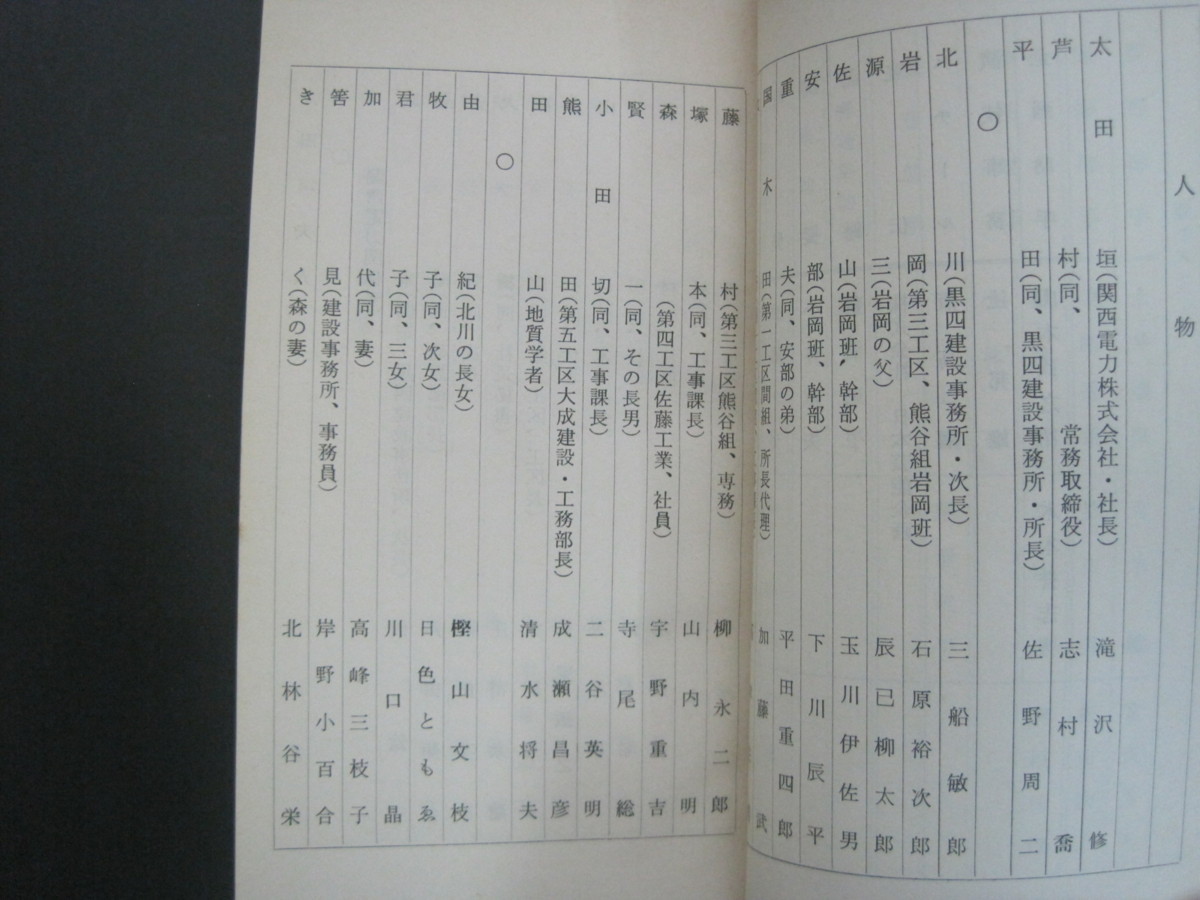 人物
太田垣(関西電力株式会社・社長) 滝沢修
芦村(同、常務取締役) 志村喬
平田(同、黒四建設事務所・所長) 佐野周二
〇
北川(黒四建設事務所・次長) 三船敏郎
岩岡(第三工区、熊谷組岩岡班) 石原裕次郎
源三(岩岡の父) 辰巳柳太郎
佐山(岩岡班、幹部) 玉川伊佐男
安部(岩岡班、幹部) 下川辰平
重夫(同、安部の弟) 平田重四郎
国木田(第一工区間組、所長代理) 加藤武
藤村(第三工区熊谷組、専務) 柳永二郎
塚本(同、工事課長) 山内明
森(第四工区佐藤工業、社員) 宇野重吉
賢一(同、その長男) 寺尾総
小田切(同、工事課長) 二谷英明
熊田(第五工区大成建設・工務部長) 成瀬昌彦
田山(地質学者) 清水将夫
〇
由紀(北川の長女) 樫山文枝
牧子(同、次女) 日色ともゑ
君子(同、三女) 川口晶
加代(同、妻) 高峰三枝子
筈見(建設事務所、事務員) 岸野小百合
きく(森の妻) 北林谷栄